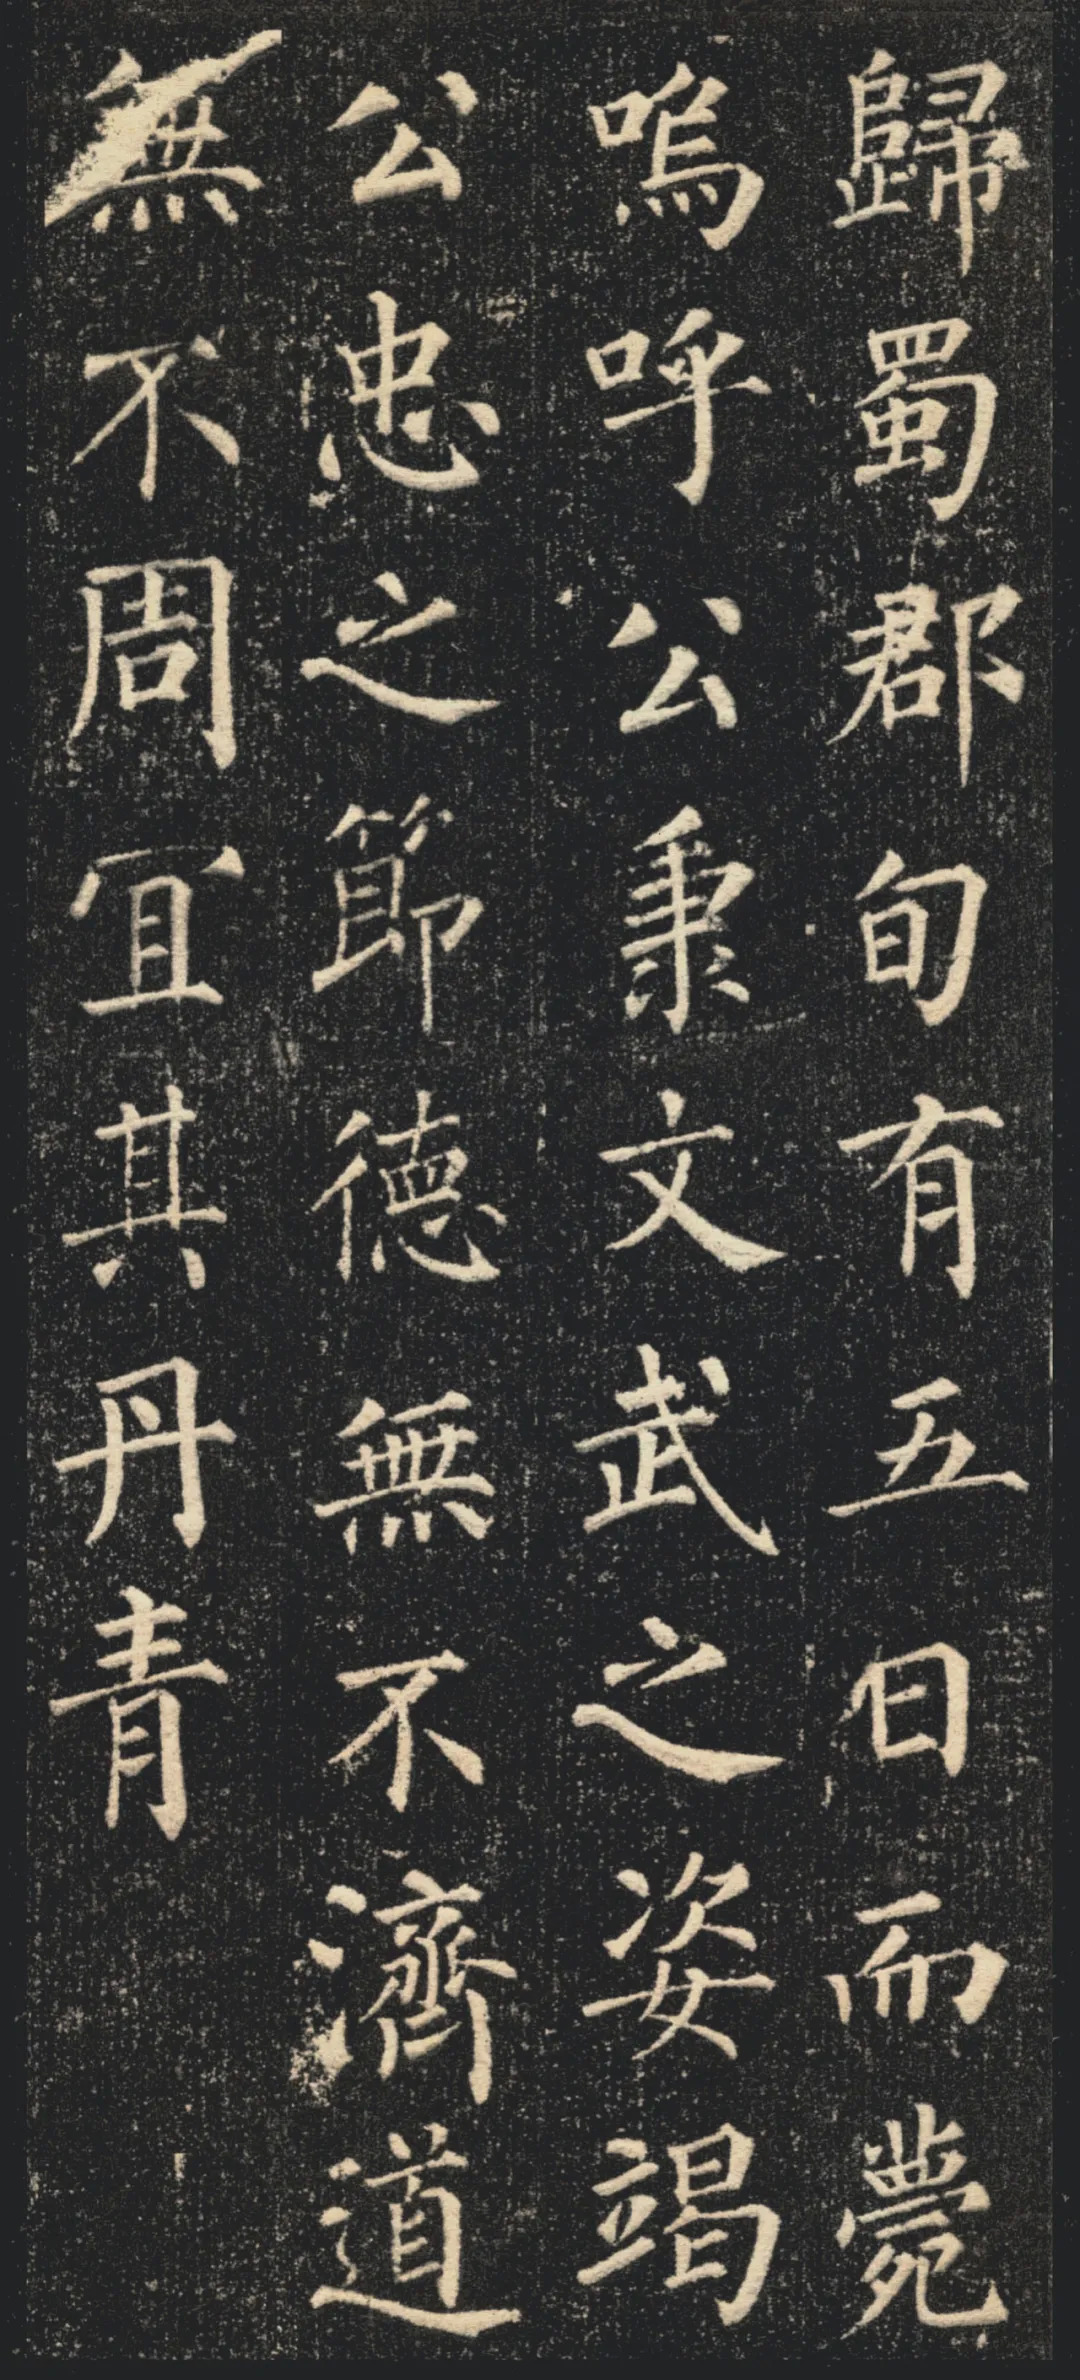 歸蜀郡旬有五日而薨
嗚呼公秉文武之姿竭
公忠之節德無不濟道
無不周宜其丹青